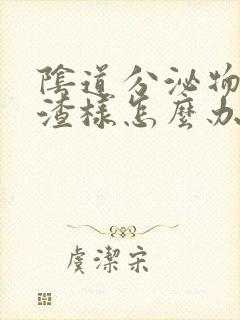 陰道分泌物
渣樣怎麼办
虞潔宋